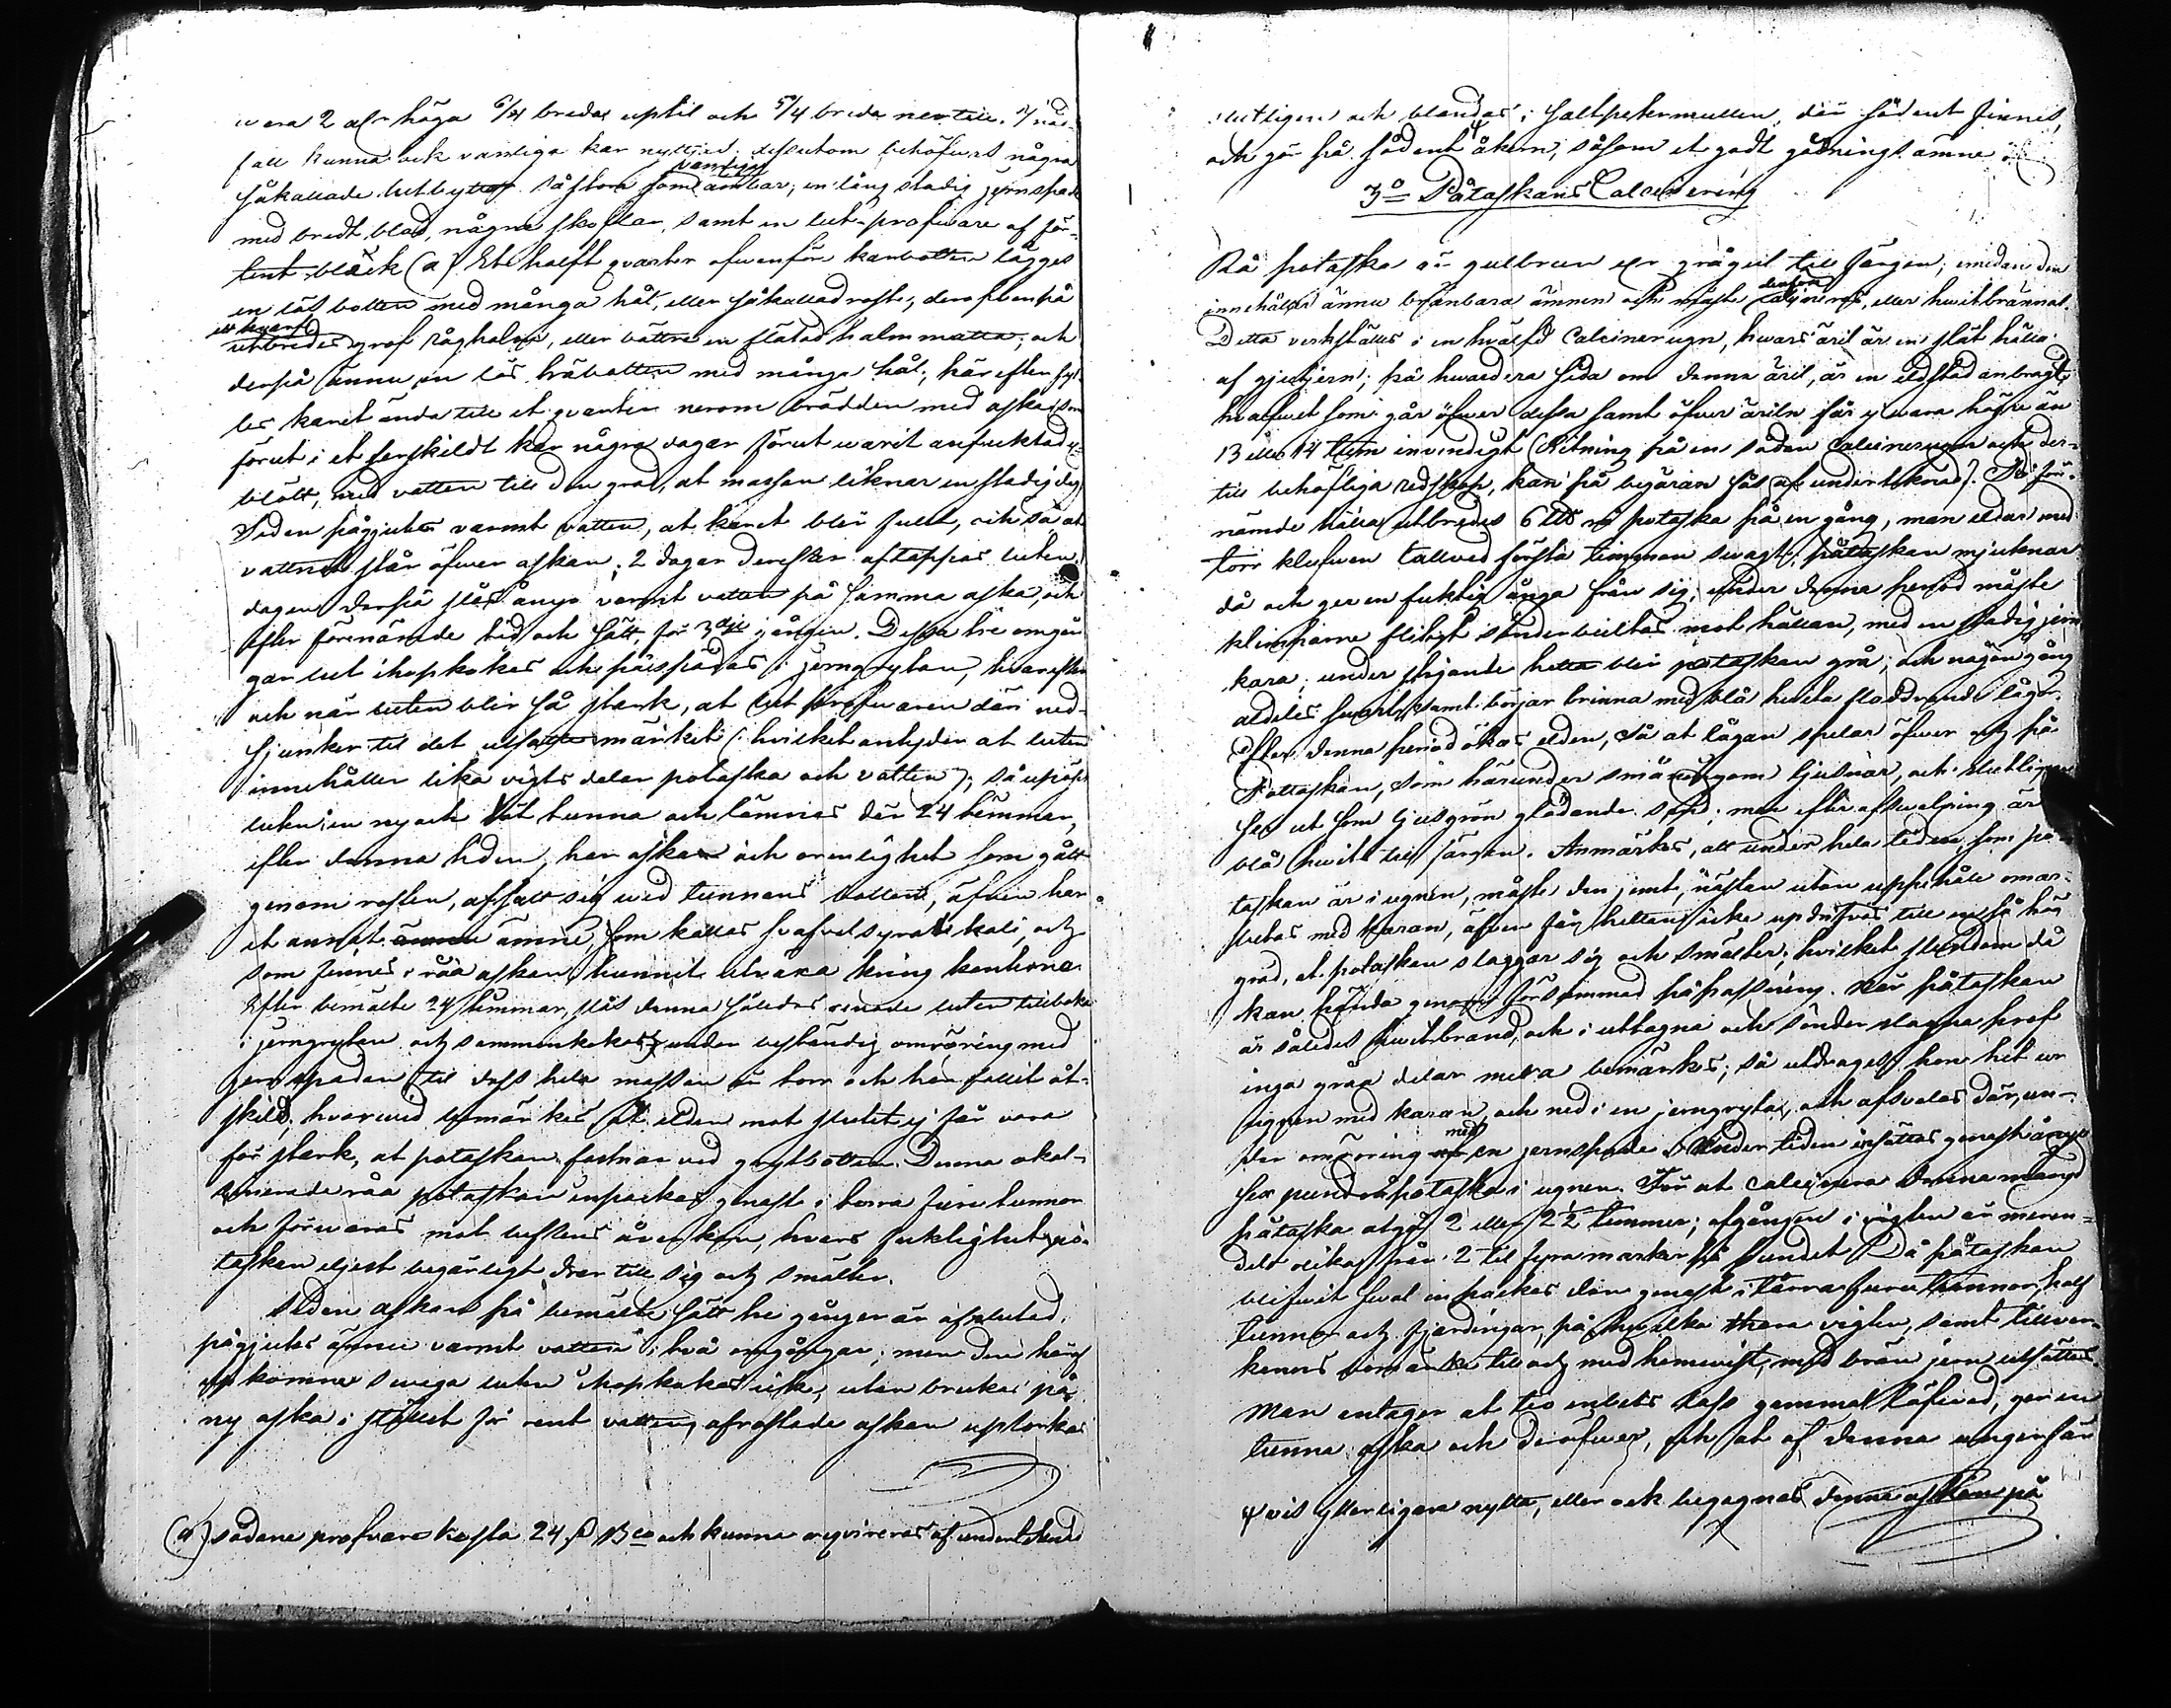 wara 2 aln höga 6/4 breda uptil och 5/4 breda nertill. I nöd-
fall kunna ock vanliga kar nyttjas. dessutom behöfwes några
såkallade lutbyttor såstora som vanliga ämbar; en lång stadig jernspade
med bredt blad, några skoflar, samt en lut-profware af för-
tent bläck (a) Ett halft qvarter ofwanför karbotten lägges
en lös botten med många hål, eller såkallad rost; derofwanpå
utbredes grof råghalm, eller bättre en flätad halm matta; och
derpå ännu en lös träbotten med många hål; här efter fyl-
les karet ända till et qvarter nerom brädden med aska, som
förut i et serskildt kar några dagar förut warit anfuktad,
blött, med vatten till den grad, at massan liknar en stadig deg
Sedan pågjutes varmt vatten, at karet blir fullt, och så at
vattnet står öfwer askan; 2 dagar derefter aftappas luten
dagen derpå slås ånyo varmt vatten på samma aska, och
efter förenämde tid och sätt, för 3dje gången. Dessa tre omgån
gar lut ihopkokas och påspädas i jerngrytan, hvarefter
och när luten blir så stark, at lut profwaren där ned-
sjunker til det utsatte märket (hvilket antyder at luten
innehåller lika vigts delar potaska och vatten); så upöses
luten i en ny och tät tunna och lämnas der 24 timmar,
efter denna tiden, har askan och orenlighet som gått
genom rosten, afsatt sig wid tunnans botten, äfwen har
et annat ämne, som kallas swafvelsyradt kali, och
som finnes i råa askan hunnit utwexa kring kanterna.
Efter bemälte 24 timmar, slås denna således renade luten tillbaka
i jerngrytan och sammankokas under beständig omröring med
jernspaden til dess hela massan är torr och har fallit åt-
skild; hvarwid bemärkes at elden mot slutet ej får vara
för stark, at potaskan fastnar wid grytbotten. Denna okal-
cinerade råa potaskan inpackas genast i torra furu tunnor
och förwaras mot luftens åverkan, hvars fuktighet på-
taskan eljest begärligt drar till sig och smälter.
Sedan askan på bemälte sätt tre gånger är aflutad,
pågjutes ännu varmt vatten i två omgångar; men den häraf
upkomne swaga luten ihopkokas icke, utan brukas på
ny aska i stället för rent vatten, afrostade askan uptorkas
(a) sådane profware kosta 24 ß Bco och kunna reqvireras af undertecknad
slutligen och blandas i saltpetermullen, där sådant finnes,
och gör på sådent ψ åkern, såsom et godt gödnings ämne
3o Påtaskans Calcinering
Rå potaska är gulbrun eller grågul till färgen; emedan den
innehåller ännu bränbara ämnen och måste derföre calcineras, eller hwitbrännas.
Detta verkställes i en hvälfd Calciner ugn, hwars äril är en slät häll
af gjutjern; på hwardera sida om denna äril, är en eldstad anbragt,
hvalfvet som går öfwer dessa samt öfwer ärilen får ej wara högre än
13 eller 14 tum invändigt (Ritning på en sådan calcinerugn och der-
till behöfliga redskap, kan på begäran fås af undertecknad). På för-
nämde häll utbredes 6 LH rå potaska på en gång, man eldar med
torr klufwen tallved första timman swagt, påtaskan mjuknar
då och ger en fuktig ånga från sig; under denna period måste
klimparne flitigt sönderbultas mot hällen, med en stadig jern
kara; under stigande hetta blir potaskan grå, och någongång
aldeles swart, samt börjar brinna med blå hwita fladdrande lågor.
Efter denna period ökas elden, så at lågan spelar öfwer och på
Pottaskan, som härunder småningom ljusnar, och slutligen
ser ut som ljusgrön glödande snö; men efter afswalning är
blå hwit till färgen. Anmärkes, att under hela tiden, som på-
taskan är i ugnen, måste den jemt, nästan utan uppehåll omar-
betas med karan, äfwen får hettan icke updrifvas till en så hög
grad, at potaskan slaggar sig och smälter; hvilket stundom då
kan hända genom försummad påpassning. När påtaskan
är således hwitbränd, och i uttagna och sönder slagna prof
inga gråa delar mera bemärkes; så utdrages hon het ur
ugnen med karan, och ned i en jerngryta, och afsvalas där, un-
der omröring med en jernspade. Under tiden insättes genast ånyo
sex pund råpotaska i ugnen. För at calcinera denna mängd
påtaska åtgår 2 eller 2½ timmar; afgången i vigten är meren-
dels olika från 2 til fyra marker på pundet. Då påtaskan
blifwit sval inpackas den genast i torra furu tunnor, half
tunnor och fjerdingar, på hvilka thara vigten, samt tillver-
karens namn och hemwist, med bränjern utsättes.
Man antager at tio enbets lass gammal löfwed, ger en
tunna aska och deröfwer, och at af denna ungefär
ψ vis ytterligare nytta, eller ock begagnas denna askan på